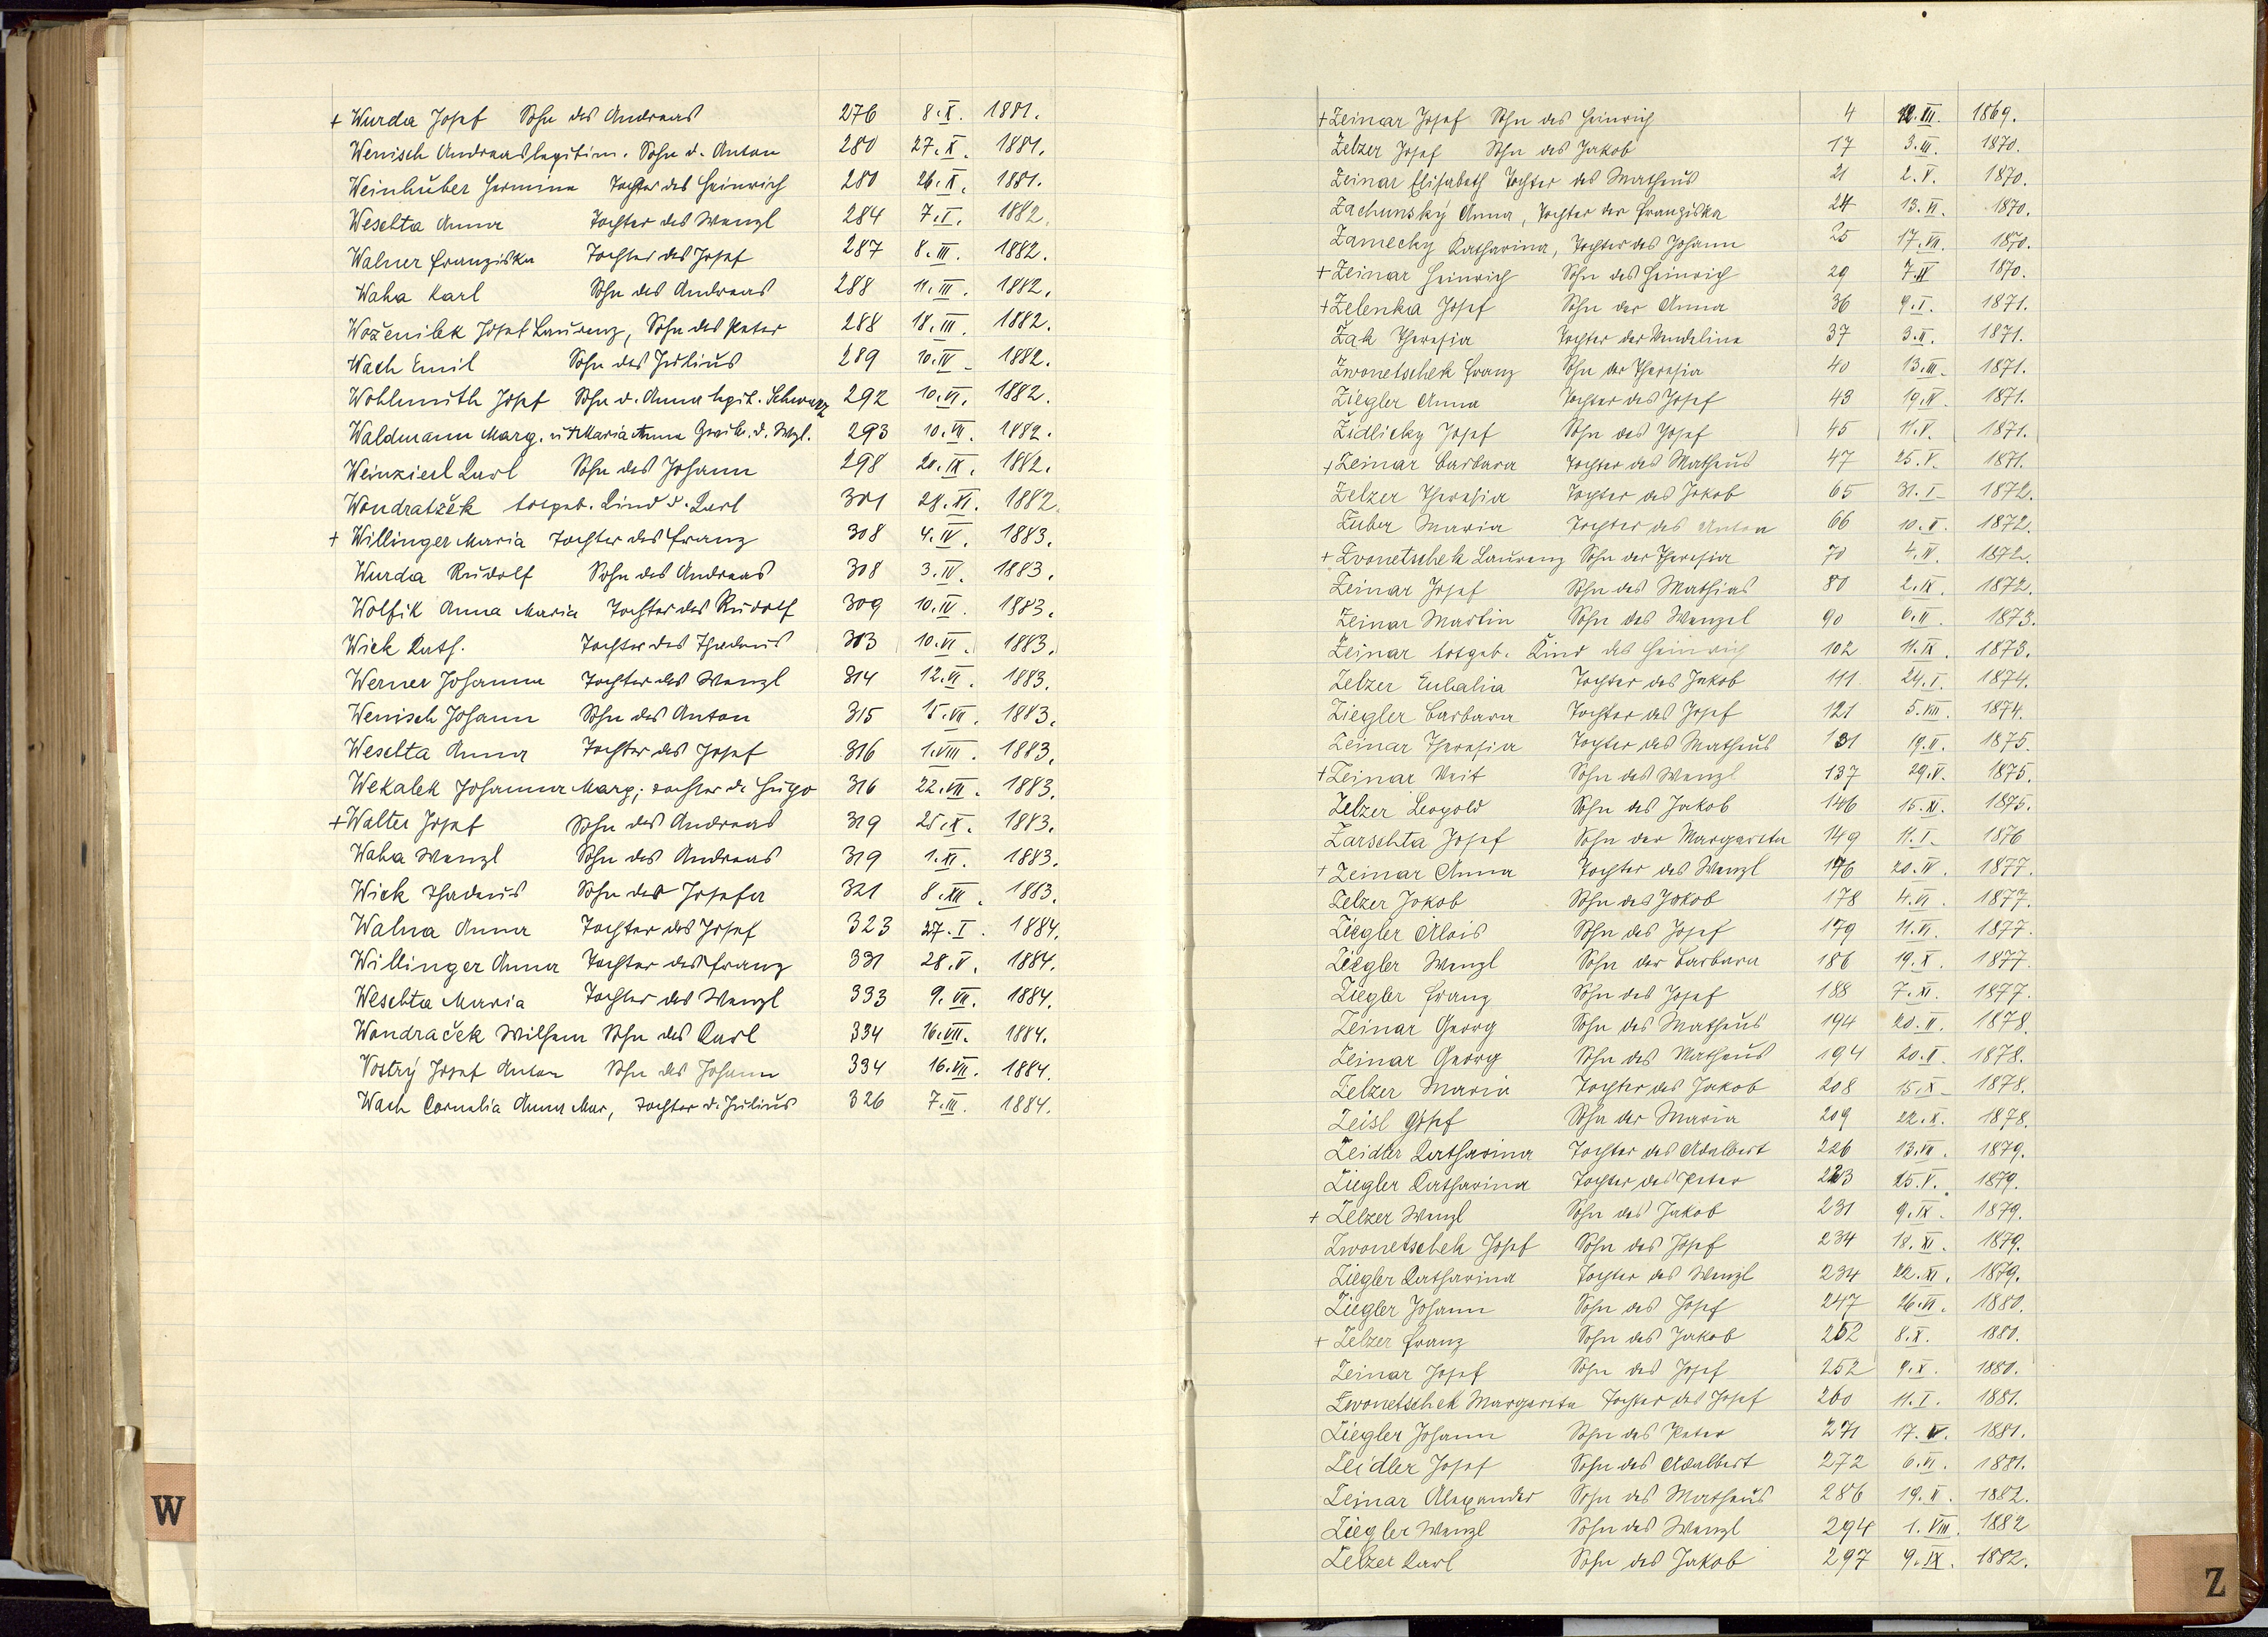 + Wurda Josef Sohn des Andreas 276 8.X. 1881.
Wenisch Andreas legitim. Sohn d. Anton 280 27.X. 1881.
Weinhuber Hermine Tochter des Heinrich 280 26.X. 1881.
Weselta Anna Tochter des Wenzl 284 7.I. 1882.
Walner Franziska Tochter des Josef 287 8.III. 1882.
Waha Karl Sohn des Andreas 288 11.III. 1882.
Woženilek Josef Laurenz, Sohn des Peter 288 18.III. 1882.
Wach Emil Sohn des Julius 289 10.IV. 1882.
Wohlmuth Josef Sohn d. Anna legit. Schwarz 292 10.VI. 1882.
Waldmann Marg. u. Maria Anna d. Wzl. 293 10.VII. 1882.
Weinzierl Karl Sohn des Johann 298 20.IX. 1882.
Wondratžek totgeb. Kind d. Karl 301 28.XI. 1882.
+ Willinger Maria Tochter des Franz 308 4.IV. 1883.
Wurda Rudolf Sohn des Andreas 308 3.IV. 1883.
Wolfik Anna Maria Tochter des Rudolf 309 10.IV. 1883.
Wick Kath. Tochter des Thadeus 313 10.VI. 1883.
Werner Johanna Tochter des Wenzl 314 12.VI. 1883.
Wenisch Johann Sohn des Anton 315 15.VII. 1883.
Weselta Anna Tochter des Josef 316 1.VIII. 1883.
Wekalek Johanna Marg; Tochter d. Hugo 316 22.VII. 1883.
+ Walter Josef Sohn des Andreas 319 25.X. 1883.
Waha Wenzl Sohn des Andreas 319 1.XI. 1883.
Wick Thadeus Sohn der Josefa 321 8.XII. 1883.
Walna Anna Tochter des Josef 323 27.I. 1884.
Willinger Anna Tochter des Franz 331 28.V. 1884.
Weselta Maria Tochter des Wenzl 333 9.VII. 1884.
Wondraček Wilhem Sohn des Karl 334 16.VII. 1884.
Vostrý Josef Anton Sohn des Johann 334 16.VII. 1884.
Wach Cornelia Anna Mar, Tochter d. Julius 326 7.III. 1884.
W
+ Zeinar Josef Sohn des Heinrich 4 12.III. 1869.
Zelzer Josef Sohn des Jakob 17 3.III. 1870.
Zeinar Elisabeth Tochter des Matheus 21 2.V. 1870.
Zachunský Anna, Tochter der Franziska 24 13.VI. 1870.
Zamecky Katharina, Tochter des Johann 25 17.VII. 1870.
+ Zeinar Heinrich Sohn des Heinrich 29 1870.
+ Zelenka Josef Sohn der Anna 36 9.I. 1871.
Žak Theresia Tochter der Wendeline 37 3.II. 1871.
Zwonetschek Franz Sohn der Theresia 40 13.III. 1871.
Ziegler Anna Tochter des Josef 43 19.IV. 1871.
Židlicky Josef Sohn des Josef 45 11.V. 1871.
+ Zeinar Barbara Tochter des Matheus 47 25.V. 1871.
Zelzer Theresia Tochter des Jakob 65 31.I. 1872.
Zuber Maria Tochter des Anton 66 10.II. 1872.
+ Zvonetschek Laurenz Sohn der Theresia 70 4.IV. 1872.
Zeinar Josef Sohn des Mathias 80 2.IX. 1872.
Zeinar Martin Sohn des Wenzel 90 6.II. 1873.
Zeinar totgeb. Kind des Heinrich 102 11.IX. 1873.
Zelzer Eulalia Tochter des Jakob 111 24.I. 1874.
Ziegler Barbara Tochter des Josef 121 5.VIII. 1874.
Zeinar Theresia Tochter des Matheus 131 19.II. 1875.
+ Zeinar Veit Sohn des Wenzl 137 29.V. 1875.
Zelzer Leopold Sohn des Jakob 146 15.XI. 1875.
Zarschta Josef Sohn der Margareta 149 11.I. 1876
+ Zeinar Anna Tochter des Wenzl 176 20.IV. 1877.
Zelzer Jakob Sohn des Jakob 178 4.VI. 1877.
Ziegler Alois Sohn des Josef 179 11.VI. 1877.
Ziegler Wenzl Sohn der Barbara 186 19.X. 1877.
Ziegler Franz Sohn des Josef 188 7.XI. 1877.
Zeinar Georg Sohn des Matheus 194 20.II. 1878.
Zeinar Georg Sohn des Matheus 194 20.II. 1878.
Zelzer Maria Tochter des Jakob 208 15.X. 1878.
Zeisl Josef Sohn der Maria 209 22.X. 1878.
Zeidler Katharina Tochter des Adalbert 226 13.VII. 1879.
Ziegler Katharina Tochter des Peter 223 25.V. 1879.
+ Zelzer Wenzl Sohn des Jakob 231 9.IX. 1879.
Zwonetschek Josef Sohn des Josef 234 18.XI. 1879.
Ziegler Katharina Tochter des Wenzl 234 22.XI. 1879.
Ziegler Johann Sohn des Josef 247 26.VI. 1880.
+ Zelzer Franz Sohn des Jakob 252 8.X. 1880.
Zeinar Josef Sohn des Josef 252 9.X. 1880.
Zwonetschek Margareta Tochter des Josef 260 11.I. 1881.
Ziegler Johann Sohn des Peter 271 17.V. 1881.
Zeidler Josef Sohn des Adalbert 272 6.VI. 1881.
Zeinar Alexander Sohn des Matheus 286 19.II. 1882.
Ziegler Wenzl Sohn des Wenzl 294 1.VIII. 1882
Zelzer Karl Sohn des Jakob 297 9.IX. 1882.
Z